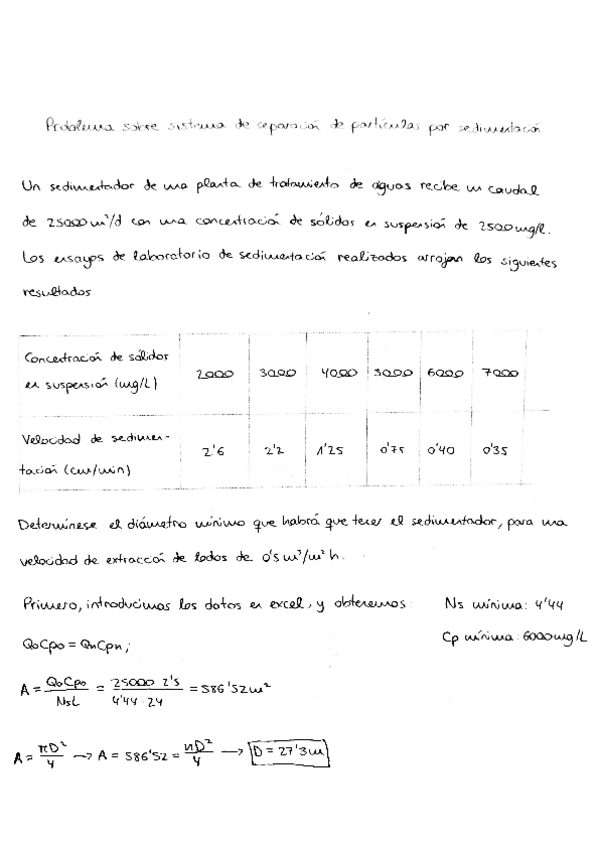 Problema sobre sistema de separación de partículas por sedimentación
Un sedimentador de una planta de tratamiento de aguas recibe un caudal
de 25000 m³/d con una concentración de sólidos en suspensión de 2500 mg/l.
Los ensayos de laboratorio de sedimentación realizados arrojan los siguientes
resultados
Concentración de sólidos en suspensión (mg/L) 2000 3000 4000 5000 6000 7000
Velocidad de sedimentación (cm/min) 2'6 2'2 1'25 0'75 0'40 0'35
Determínese el diámetro mínimo que habrá que tener el sedimentador, para una
velocidad de extracción de lodos de 0'5 m³/m² h.
Primero, introducimos los datos en excel, y obtenemos: Ns mínima: 4'44
Q₀Cp₀ = QnCpn; Cp mínima: 6000 mg/L
A = Q₀Cp₀/NsL = 25000 2'5/4'44 · 24 = 586'52 m²
A = πD²/4 → A = 586'52 = πD²/4 → D = 27'3 m